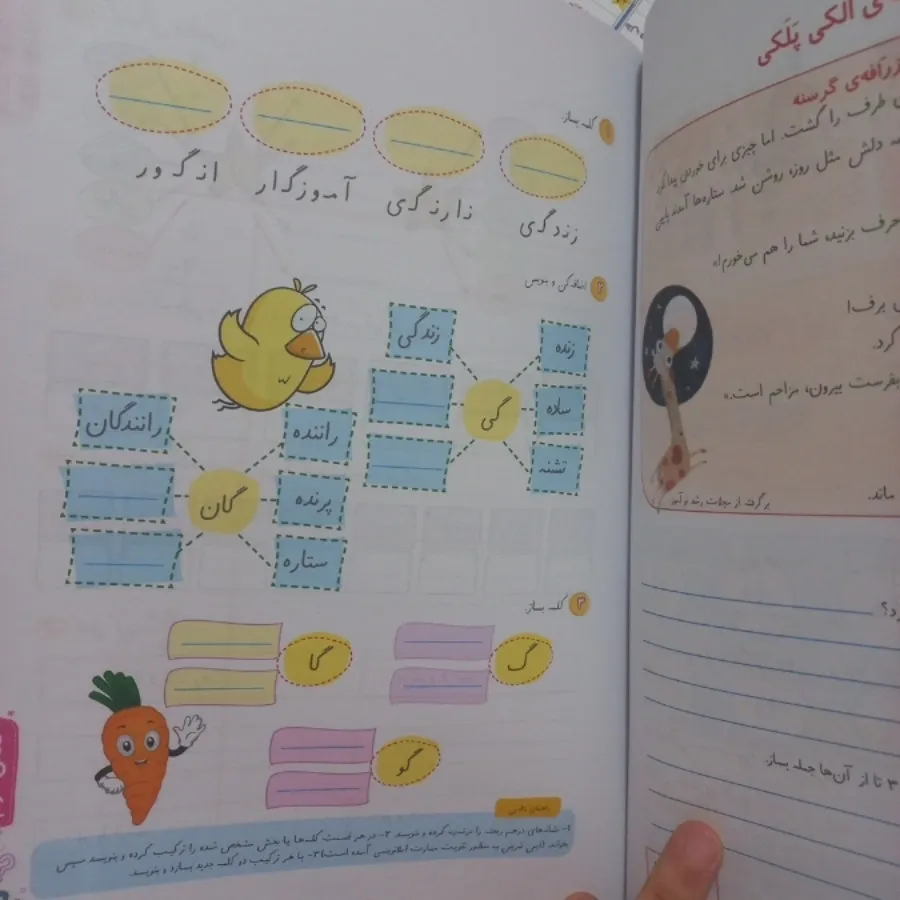 ی الکی پَلَکی
زرافه‌ی گرسنه
طرف را گشت. اما چیزی برای خوردن پیدا
دلش مثل روزه روشن شد. ستاره‌ها آمدند پایین
حرف بزنید، شما را هم می‌خورم!»
برف!
کرد.
بفرست بیرون، مزاحم است.»
ماند.
برگرفته از مجلات رشد نوآموز
۳ تا از آن‌ها جمله بساز.
۱ کلمه بساز.
زندگی
نارنگی
آموزگار
انگور
۲ اضافه کن و بنویس
زنده
ساده
تشنه
گی
زندگی
راننده
پرنده
ستاره
گان
رانندگان
۳ کلمه بساز.
گ
گا
گو
۱- نشانه‌های درهم ریخته را مرتب کرده و بنویسد ۲- در هر قسمت کلمه‌ها را با بخش مشخص شده را ترکیب کرده و بنویسد سپس
بخواند (این تمرین به منظور تقویت مهارت املانویسی آمده است) ۳- با هر ترکیب دو کلمه جدید بسازد و بنویسد.